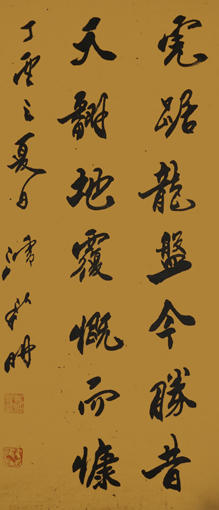 虎踞龍盤今勝昔
天翻地覆慨而慷
丁酉之夏月